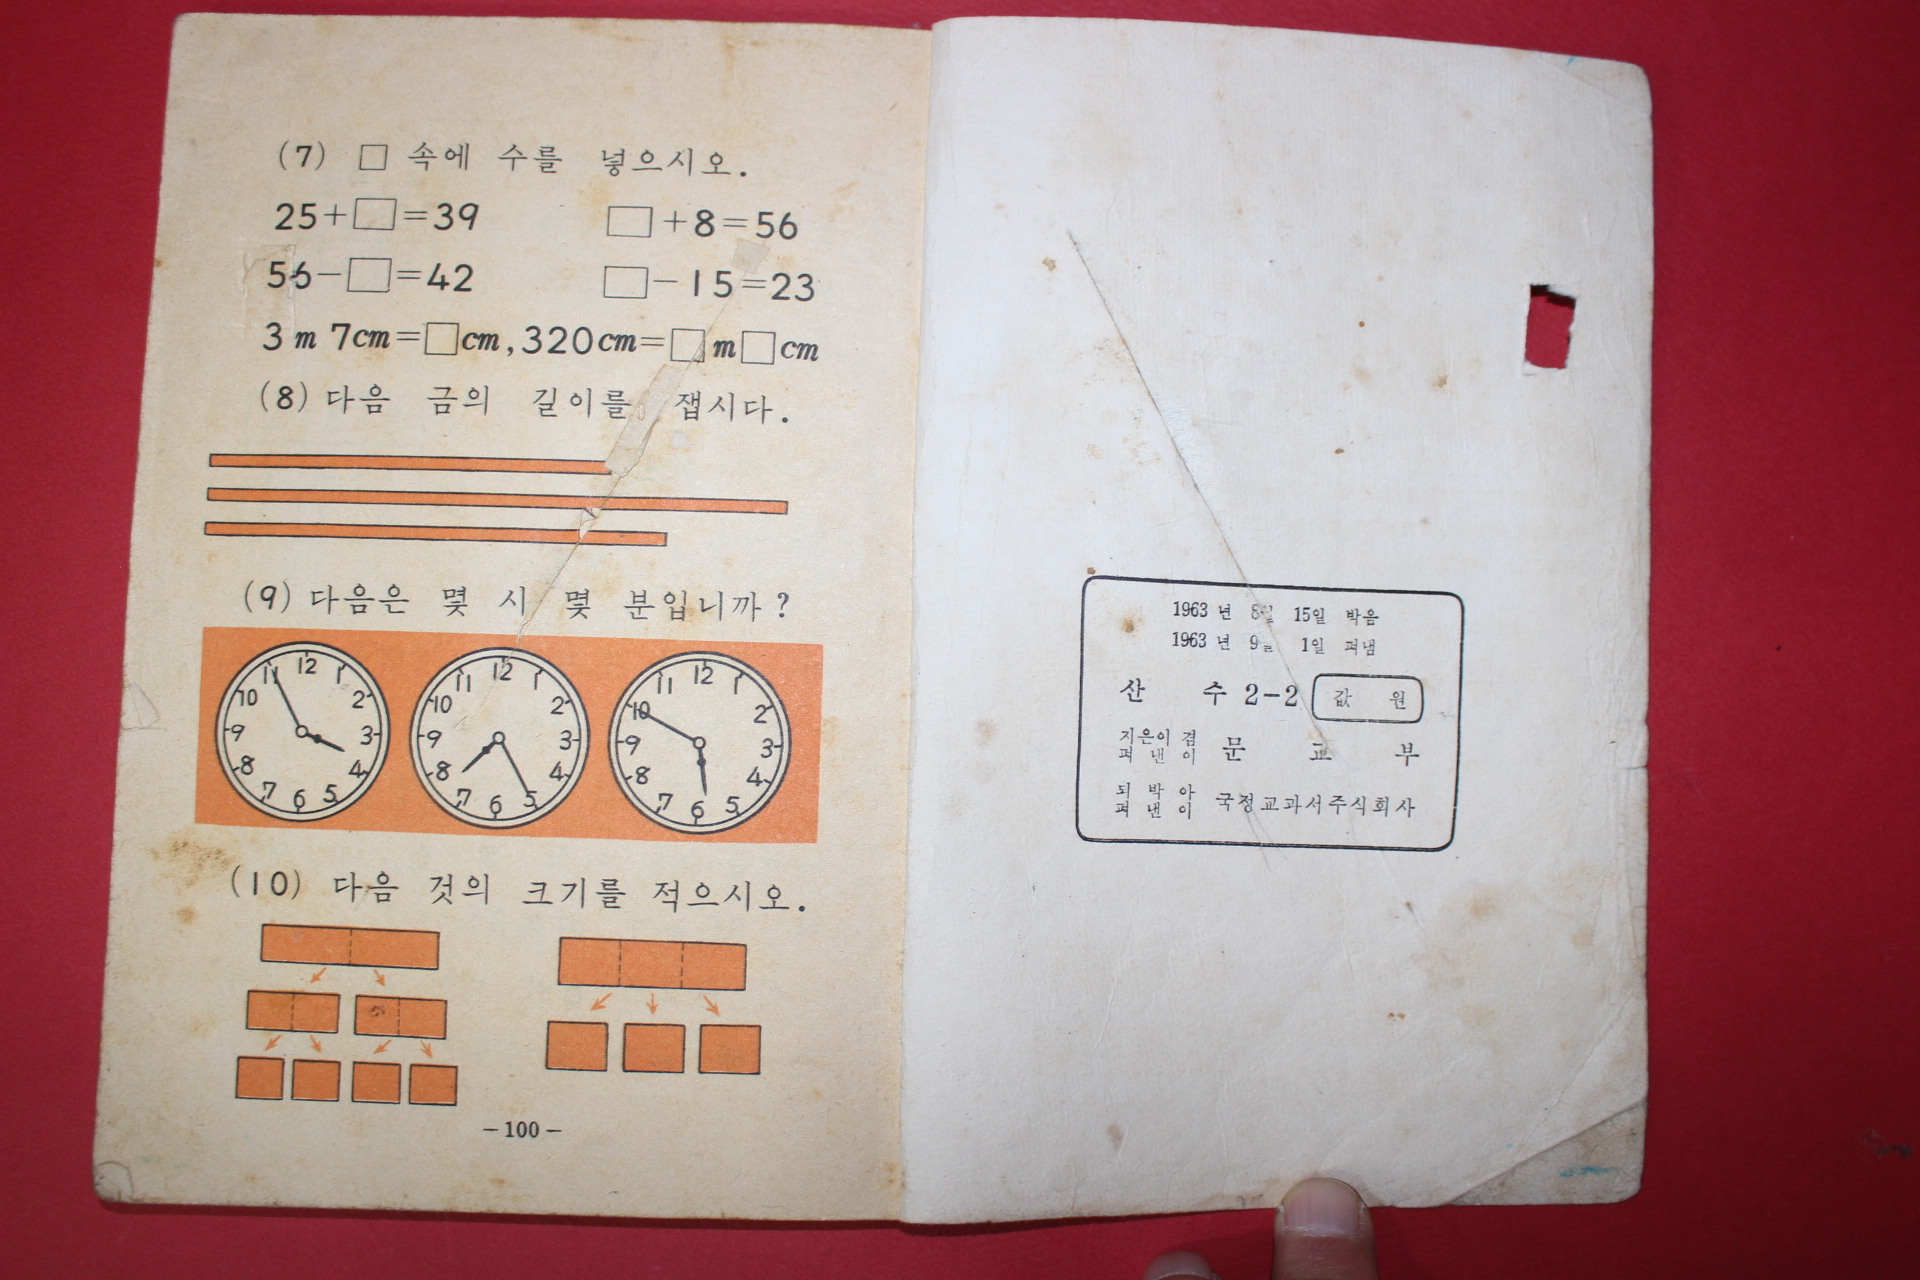 (7) □ 속에 수를 넣으시오.
25+□=39 □+8=56
56-□=42 □-15=23
3 m 7cm=□cm, 320cm=□m□cm
(8) 다음 금의 길이를 잽시다.
(9) 다음은 몇 시 몇 분입니까?
12 1 2 3 4 5 6 7 8 9 10 11
12 1 2 3 4 5 6 7 8 9 10 11
12 1 2 3 4 5 6 7 8 9 10 11
(10) 다음 것의 크기를 적으시오.
-100-
1963 년 8월 15일 박음
1963 년 9월 1일 펴냄
산 수 2-2 값 원
지은이 겸
펴 낸 이 문 교 부
되 박 아
펴 낸 이 국정교과서주식회사